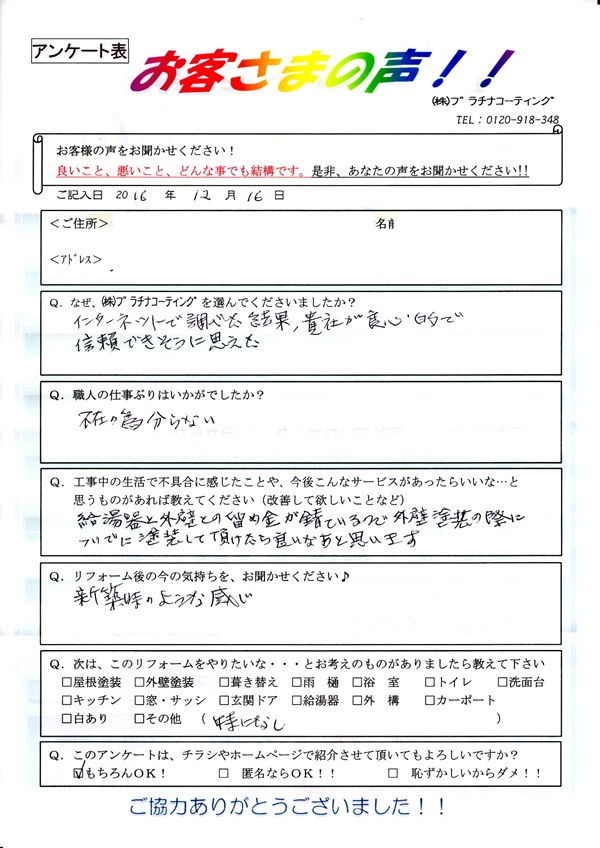 アンケート表
お客さまの声！！
㈱ﾌﾟﾗﾁﾅｺｰﾃｨﾝｸﾞ
TEL：0120-918-348
お客様の声をお聞かせください！
良いこと、悪いこと、どんな事でも結構です。是非、あなたの声をお聞かせください!!
ご記入日 2016 年 12 月 16 日
＜ご住所＞ 名前
＜ｱﾄﾞﾚｽ＞
Q. なぜ、㈱ﾌﾟﾗﾁﾅｺｰﾃｨﾝｸﾞを選んでくださいましたか？
インターネットで調べた結果，貴社が良心的で
信頼できそうに思えた
Q. 職人の仕事ぶりはいかがでしたか？
不在の為分らない
Q. 工事中の生活で不具合に感じたことや、今後こんなサービスがあったらいいな…と
思うものがあれば教えてください（改善して欲しいことなど）
給湯器と外壁との留め金が錆ているので外壁塗装の際に
ついでに塗装して頂けたら良いなあと思います
Q. リフォーム後の今の気持ちを、お聞かせください♪
新築時のような感じ
Q. 次は、このリフォームをやりたいな・・・とお考えのものがありましたら教えて下さい
□屋根塗装 □外壁塗装 □葺き替え □雨 樋 □浴 室 □トイレ □洗面台
□キッチン □窓・サッシ □玄関ドア □給湯器 □外 構 □カーポート
□白あり □その他 （ 特になし ）
Q. このアンケートは、チラシやホームページで紹介させて頂いてもよろしいですか？
☑もちろんOK！ □ 匿名ならOK！！ □ 恥ずかしいからダメ！！
ご協力ありがとうございました！！